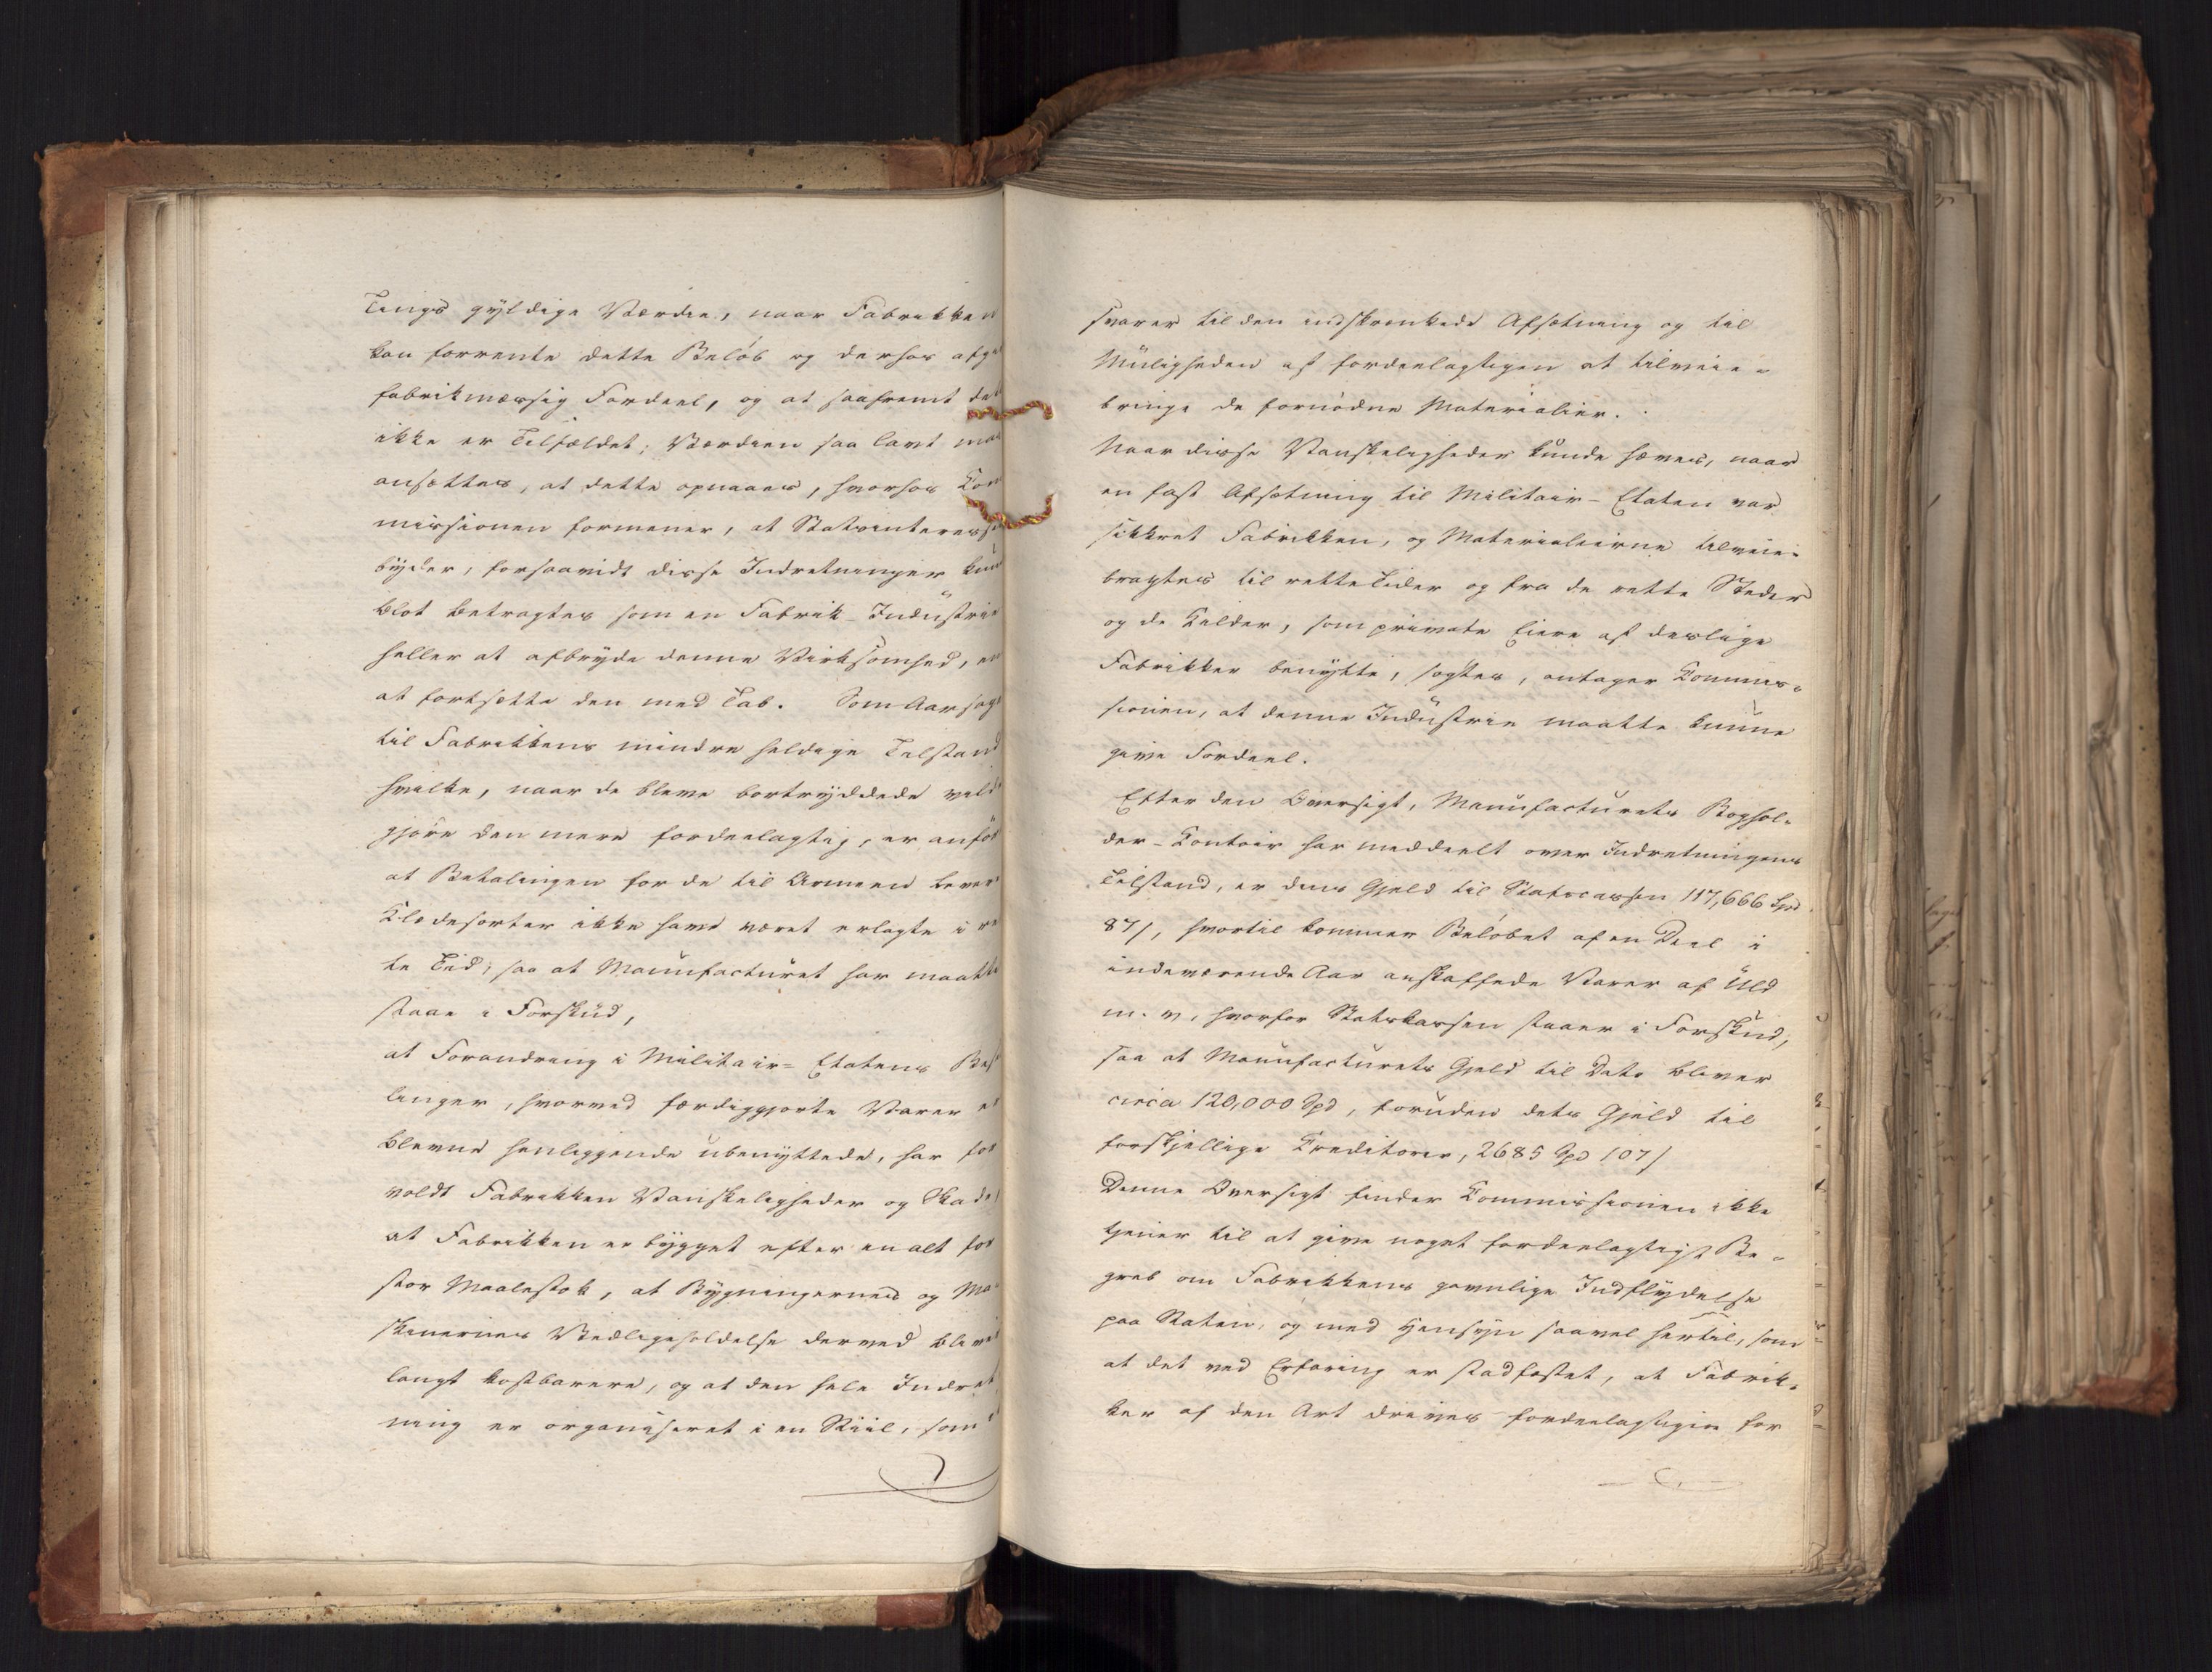 tings gyldige Værdie, naar Fabrikken
kan forrente dette Beløb og derhos afgi
fabrikmæssig Fordeel, og at saafremt det
ikke er Tilfældet, Værdien saa lavt maa
ansættes, at dette opnaaes, hvorhos Com
missionen formener, at Statsinteressen
byder, forsaavidt disse Indretninger kun
blot betragtes som en Fabrik-Industrie
heller at afbryde denne Virksomhed, en
at fortsætte den med Tab. Som Aarsag
til Fabrikkens mindre heldige Tilstand
hvilke, naar de bleve bortryddede vild
gjøre den mere fordeelagtig, er anfør
at Betalingen for de til Armeen lever
Klædesorter ikke have været erlagte i re
te Tid, saa at Manufacturet har maatte
staae i Forskud,
at Forandring i Militair-Etatens Bes
linger, hvorved færdiggjorte Varer er
blevne henliggende ubenyttede, har for
voldt Fabrikken Vanskeligheder og Skade,
at Fabrikken er bygget efter en alt for
stor Maalestok, at Bygningernes og Ma
skinernes Vedligeholdelse derved bliver
langt kostbarere, og at den hele Indret
ning er organiseret i en Stiil, som
svarer til den indskrænkede Afsætning og til
Muligheden af fordeelagtigen at tilveie-
bringe de fornødne Materialier.
Naar disse Vanskeligheder kunde hæves, naar
en fast Afsætning til Militair-Etaten var
sikkret Fabrikken, og Materialierne tilveie-
bragtes til rette Tider og fra de rette Steder
og de Kilder, som private Eiere af deslige
Fabrikker benytte, søgtes, antager Commis-
sionen, at denne Industrie maatte kunne
give Fordeel.
Efter den Oversigt, Manufacturets Boghol-
der-Contoir har meddeelt over Indretningens
Tilstand, er dens Gjeld til Statscassen 117,666 Spd
87 /, hvortil kommer Beløbet af en Deel i
indeværende Aar anskaffede Varer af Uld
m. v., hvorfor Statskassen staaer i Forskud,
saa at Manufacturets Gjeld til Dato bliver
circa 120,000 Spd, foruden dets Gjeld til
forskjellige Creditorer, 2685 Spd 107 /
Denne Oversigt finder Commissionen ikke
tjener til at give noget fordeelagtigt Be-
greb om Fabrikkens gavnlige Indflydelse
paa Staten, og med Hensyn saavel hertil, som
at det ved Erfaring er stadfæstet, at Fabrik-
ker af den Art drives fordeelagtigere for